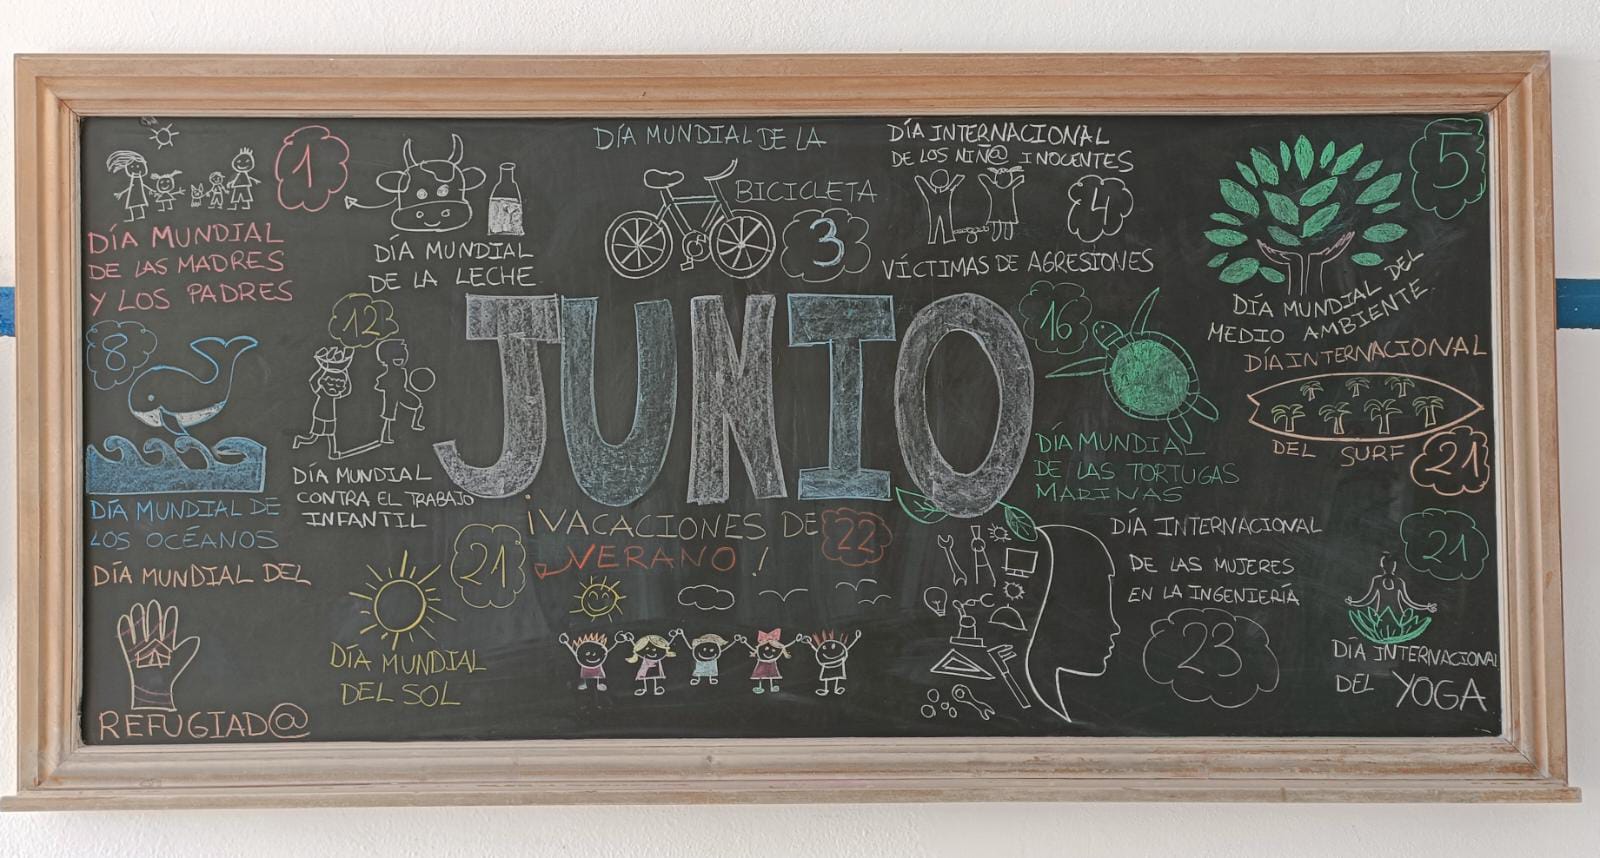 1
DÍA MUNDIAL
DE LAS MADRES
Y LOS PADRES
DÍA MUNDIAL
DE LA LECHE
DÍA MUNDIAL DE LA
BICICLETA
3
DÍA INTERNACIONAL
DE LOS NIÑ@ INOCENTES
4
VÍCTIMAS DE AGRESIONES
5
DÍA MUNDIAL DEL
MEDIO AMBIENTE
8
DÍA MUNDIAL DE
LOS OCÉANOS
12
DÍA MUNDIAL
CONTRA EL TRABAJO
INFANTIL
JUNIO
16
DÍA MUNDIAL
DE LAS TORTUGAS
MARINAS
DÍA INTERNACIONAL
DEL SURF
21
DÍA MUNDIAL DEL
REFUGIAD@
21
DÍA MUNDIAL
DEL SOL
¡VACACIONES DE
VERANO!
22
DÍA INTERNACIONAL
DE LAS MUJERES
EN LA INGENIERÍA
23
21
DÍA INTERNACIONAL
DEL YOGA